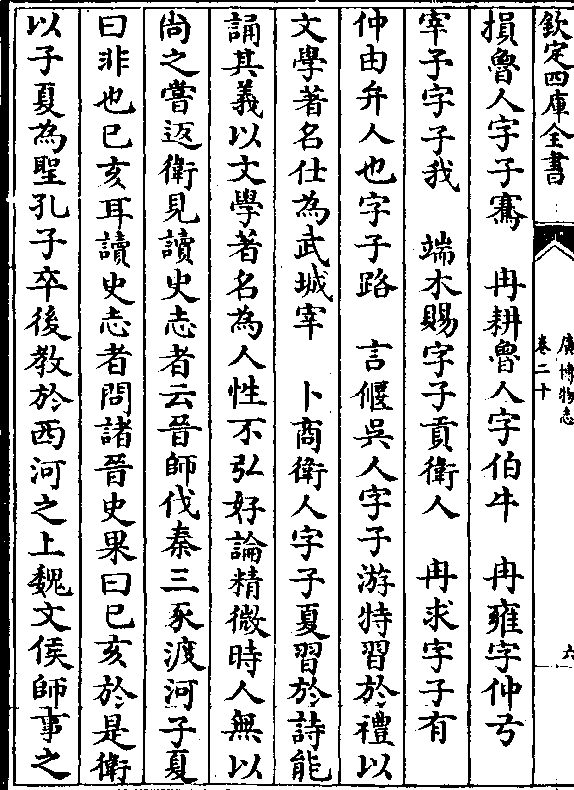 欽定四庫全書
廣博物志
卷二十
六
損魯人字子騫　冉耕魯人字伯牛　冉雍字仲弓
宰予字子我　端木賜字子貢衛人　冉求字子有
仲由弁人也字子路　言偃吳人字子游特習於禮以
文學著名仕為武城宰　卜商衛人字子夏習於詩能
誦其義以文學著名為人性不弘好論精微時人無以
尚之嘗返衛見讀史志者云晉師伐秦三豕渡河子夏
曰非也已亥耳讀史志者問諸晉史果曰已亥於是衛
以子夏為聖孔子卒後教於西河之上魏文侯師事之